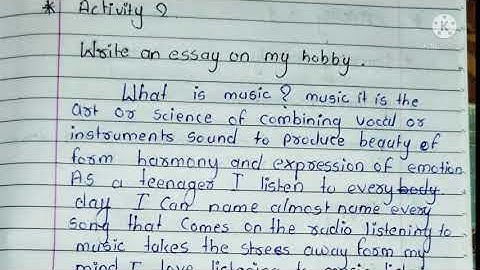 * Activity ?
Write an essay on my hobby.
What is music? music it is the
art or science of combining vocal or
instruments sound to produce beauty of
form harmony and expression of emotion
As a teenager I listen to every body
day I can name almost name every
song that comes on the radio listening to
music takes the stress away form my
mind I love listening to music